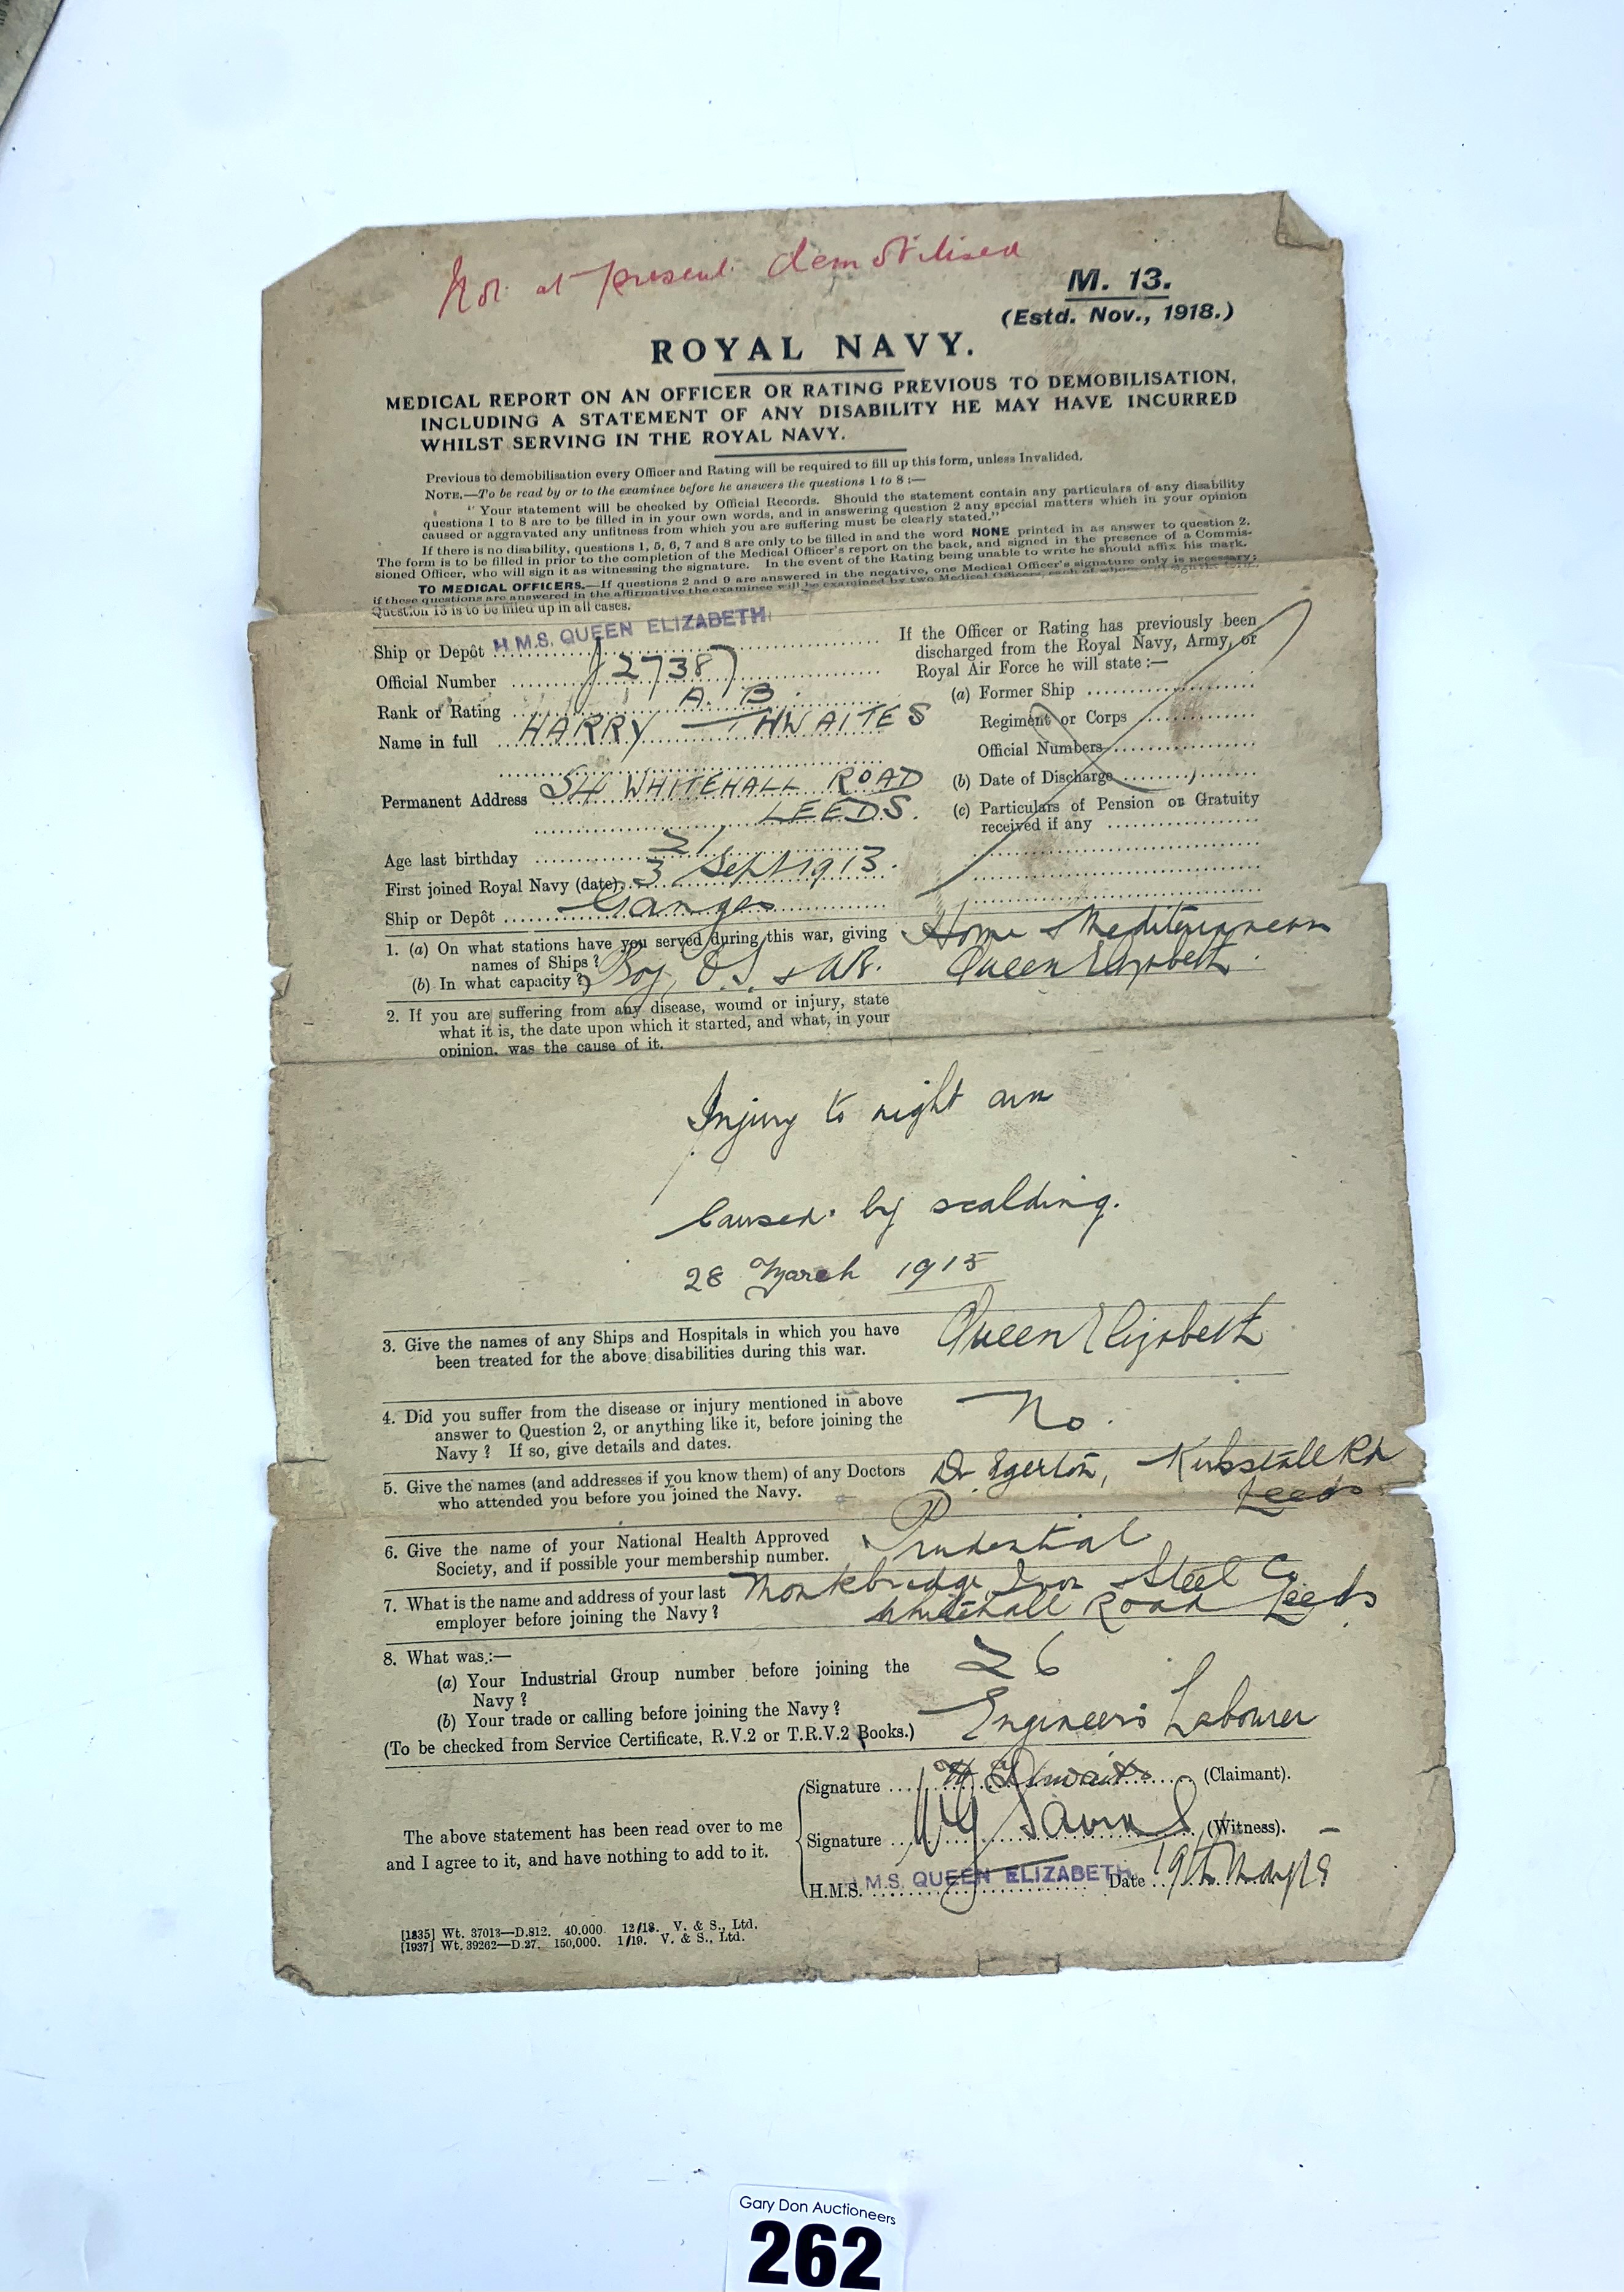 Not at present demobilised
M. 13.
(Estd. Nov., 1918.)
ROYAL NAVY.
MEDICAL REPORT ON AN OFFICER OR RATING PREVIOUS TO DEMOBILISATION,
INCLUDING A STATEMENT OF ANY DISABILITY HE MAY HAVE INCURRED
WHILST SERVING IN THE ROYAL NAVY.
Previous to demobilisation every Officer and Rating will be required to fill up this form, unless Invalided.
NOTE.—To be read by or to the examinee before he answers the questions 1 to 8 :—
"Your statement will be checked by Official Records. Should the statement contain any particulars of any disability
questions 1 to 8 are to be filled in in your own words, and in answering question 2 any special matters which in your opinion
caused or aggravated any unfitness from which you are suffering must be clearly stated."
If there is no disability, questions 1, 5, 6, 7 and 8 are only to be filled in and the word NONE printed in as answer to question 2.
The form is to be filled in prior to the completion of the Medical Officer's report on the back, and signed in the presence of a Commis-
sioned Officer, who will sign it as witnessing the signature. In the event of the Rating being unable to write he should affix his mark.
TO MEDICAL OFFICERS.—If questions 2 and 9 are answered in the negative, one Medical Officer's signature only is necessary;
if these questions are answered in the affirmative the examinee will be examined by two Medical Officers, each of whom
Question 13 is to be filled up in all cases.
Ship or Depôt H.M.S. QUEEN ELIZABETH
Official Number J27387
Rank or Rating A.B.
Name in full HARRY THWAITES
Permanent Address 54 WHITEHALL ROAD
LEEDS.
Age last birthday 21
First joined Royal Navy (date) 3 Sept 1913.
Ship or Depôt Ganges
If the Officer or Rating has previously been
discharged from the Royal Navy, Army, or
Royal Air Force he will state :—
(a) Former Ship
Regiment or Corps
Official Numbers
(b) Date of Discharge
(c) Particulars of Pension or Gratuity
received if any
1. (a) On what stations have you served during this war, giving
names of Ships ?
Home & Mediterranean
Queen Elizabeth.
(b) In what capacity ? Boy, O.S. & AB.
2. If you are suffering from any disease, wound or injury, state
what it is, the date upon which it started, and what, in your
opinion, was the cause of it.
Injury to right arm
Caused by scalding.
28 March 1915
3. Give the names of any Ships and Hospitals in which you have
been treated for the above disabilities during this war.
Queen Elizabeth
4. Did you suffer from the disease or injury mentioned in above
answer to Question 2, or anything like it, before joining the
Navy ? If so, give details and dates.
No.
5. Give the names (and addresses if you know them) of any Doctors
who attended you before you joined the Navy.
Dr Egerton, Kirkstall Rd
Leeds
6. Give the name of your National Health Approved
Society, and if possible your membership number.
Prudential
7. What is the name and address of your last
employer before joining the Navy ?
Monkbridge Iron & Steel Co.
Whitehall Road Leeds.
8. What was :—
(a) Your Industrial Group number before joining the
Navy ?
26
(b) Your trade or calling before joining the Navy ?
Engineers Labourer
(To be checked from Service Certificate, R.V.2 or T.R.V.2 Books.)
The above statement has been read over to me
and I agree to it, and have nothing to add to it.
Signature H Thwaites (Claimant).
Signature (Witness).
H.M.S. H.M.S. QUEEN ELIZABETH Date 19th May 19
[1835] Wt. 37013—D.812. 40,000. 12/18. V. & S., Ltd.
[1937] Wt. 39262—D.27. 150,000. 1/19. V. & S., Ltd.
Gary Don Auctioneers
262